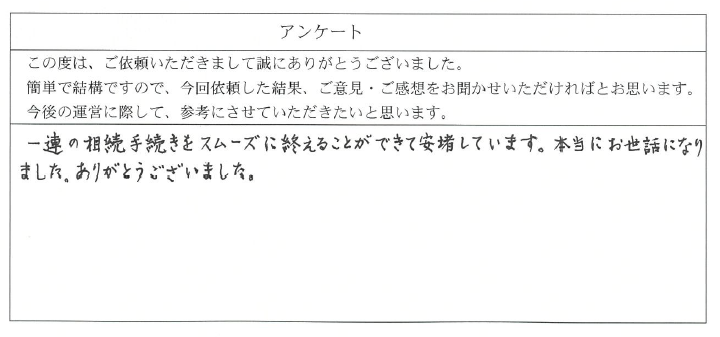 アンケート
この度は、ご依頼いただきまして誠にありがとうございました。
簡単で結構ですので、今回依頼した結果、ご意見・ご感想をお聞かせいただければとお思います。
今後の運営に際して、参考にさせていただきたいと思います。
一連の相続手続きをスムーズに終えることができて安堵しています。本当にお世話になり
ました。ありがとうございました。